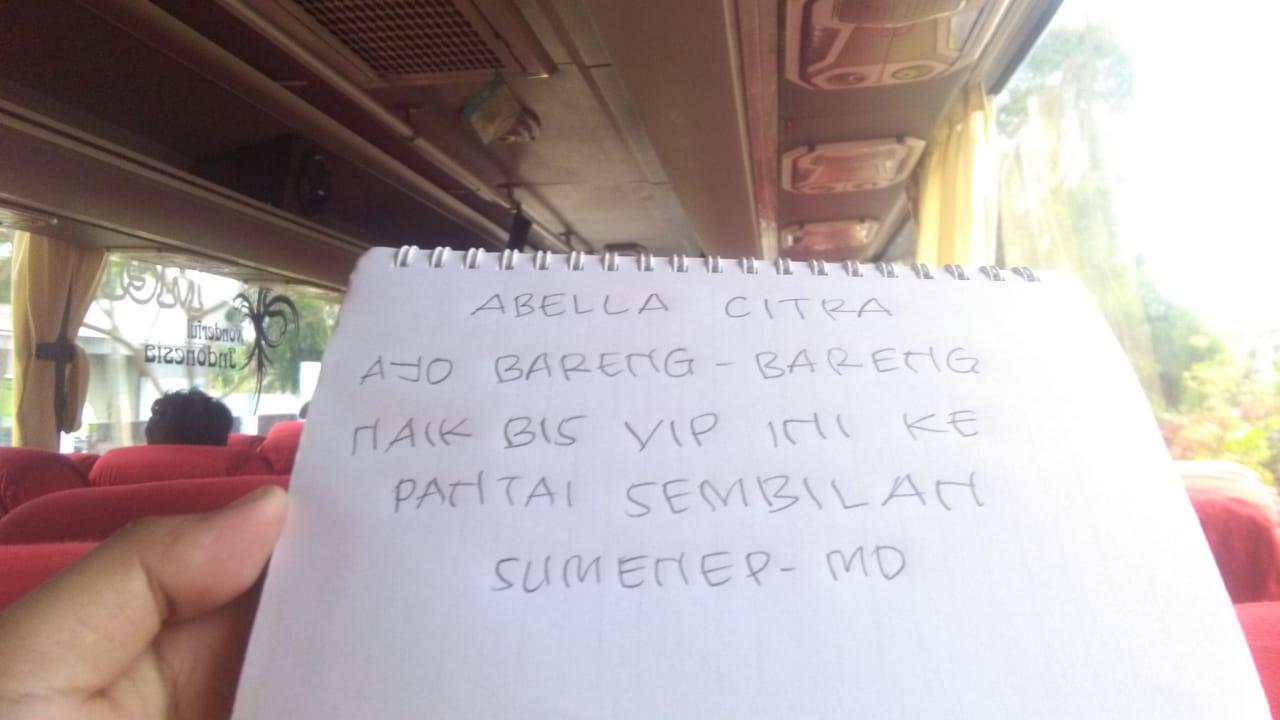 Wonderful
Indonesia
ABELLA CITRA
AYO BARENG-BARENG
NAIK BIS VIP INI KE
PANTAI SEMBILAN
SUMENEP-MD